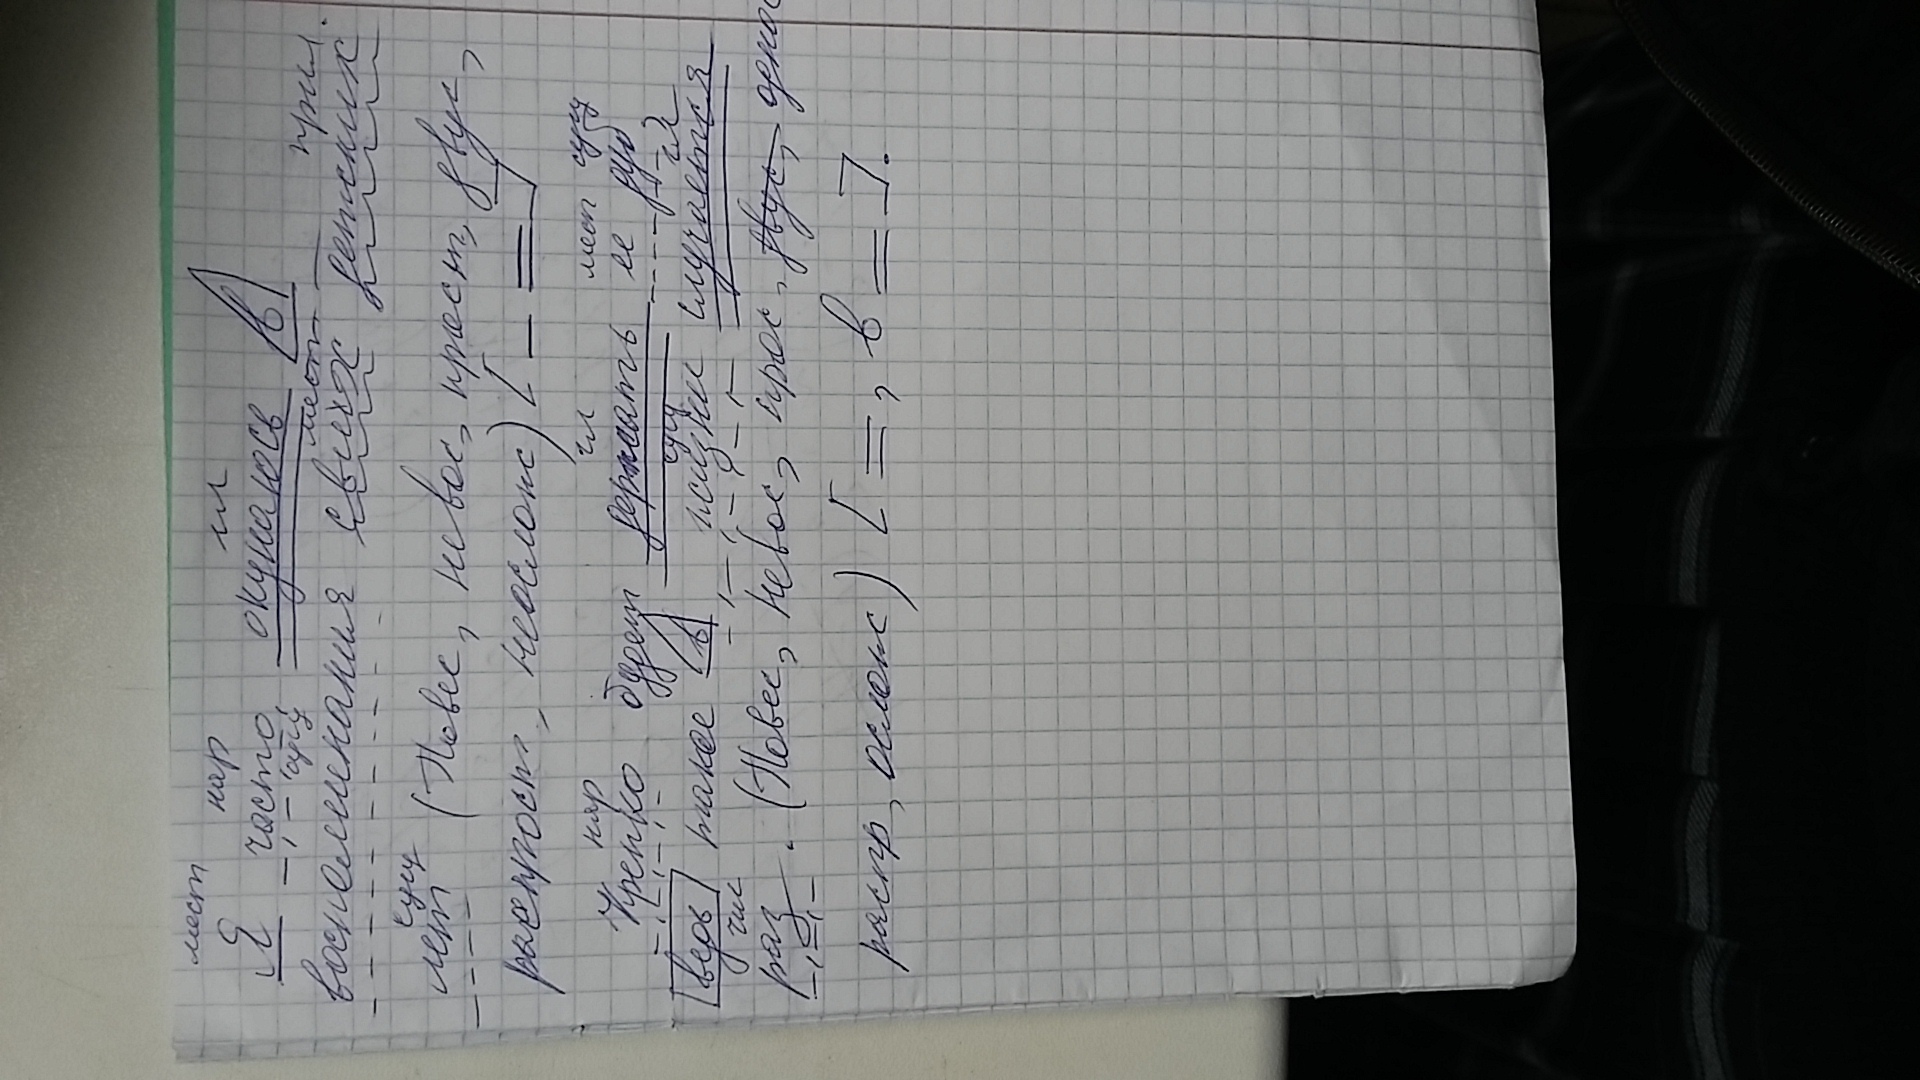 мест нар гл
Я часто окунаюсь в
сущ мест прил.
воспоминания своих детских
сущ
лет (Повес, невос, прост, двус,
распрост, неослож) [ — = ]
нар гл мест сущ
Крепко будем держать ее руб
сущ
ведь такое в жизни случается
чис
раз. (Повес, невос, прос, двус, одно
распр, ослож) [ =, в = ].